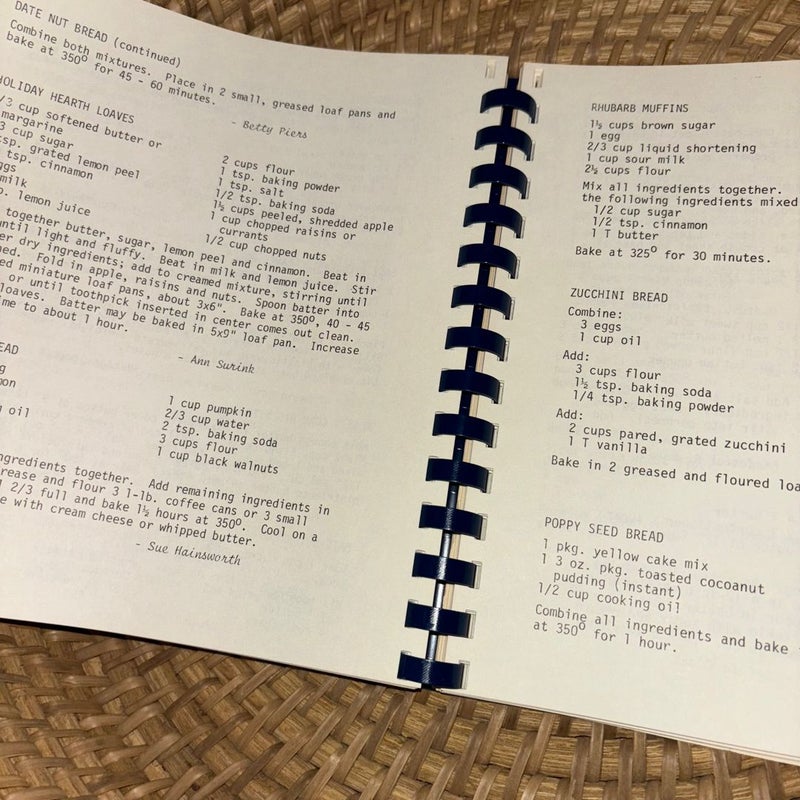 DATE NUT BREAD (continued)
Combine both mixtures. Place in 2 small, greased loaf pans and
bake at 350° for 45 - 60 minutes.
- Betty Piers
HOLIDAY HEARTH LOAVES
/3 cup softened butter or
margarine
3 cup sugar
tsp. grated lemon peel
tsp. cinnamon
ggs
milk
p. lemon juice
2 cups flour
1 tsp. baking powder
1 tsp. salt
1/2 tsp. baking soda
1½ cups peeled, shredded apple
1 cup chopped raisins or
currants
1/2 cup chopped nuts
together butter, sugar, lemon peel and cinnamon. Beat in
until light and fluffy. Beat in milk and lemon juice. Stir
er dry ingredients; add to creamed mixture, stirring until
ned. Fold in apple, raisins and nuts. Spoon batter into
ed miniature loaf pans, about 3x6". Bake at 350°, 40 - 45
or until toothpick inserted in center comes out clean.
loaves. Batter may be baked in 5x9" loaf pan. Increase
ime to about 1 hour.
- Ann Surink
EAD
g
mon
g oil
1 cup pumpkin
2/3 cup water
2 tsp. baking soda
3 cups flour
1 cup black walnuts
ingredients together. Add remaining ingredients in
rease and flour 3 1-lb. coffee cans or 3 small
l 2/3 full and bake 1½ hours at 350°. Cool on a
e with cream cheese or whipped butter.
- Sue Hainsworth
RHUBARB MUFFINS
1½ cups brown sugar
1 egg
2/3 cup liquid shortening
1 cup sour milk
2½ cups flour
Mix all ingredients together.
the following ingredients mixed
1/2 cup sugar
1/2 tsp. cinnamon
1 T butter
Bake at 325° for 30 minutes.
ZUCCHINI BREAD
Combine:
3 eggs
1 cup oil
Add:
3 cups flour
1½ tsp. baking soda
1/4 tsp. baking powder
Add:
2 cups pared, grated zucchini
1 T vanilla
Bake in 2 greased and floured loa
POPPY SEED BREAD
1 pkg. yellow cake mix
1 3 oz. pkg. toasted cocoanut
pudding (instant)
1/2 cup cooking oil
Combine all ingredients and bake
at 350° for 1 hour.